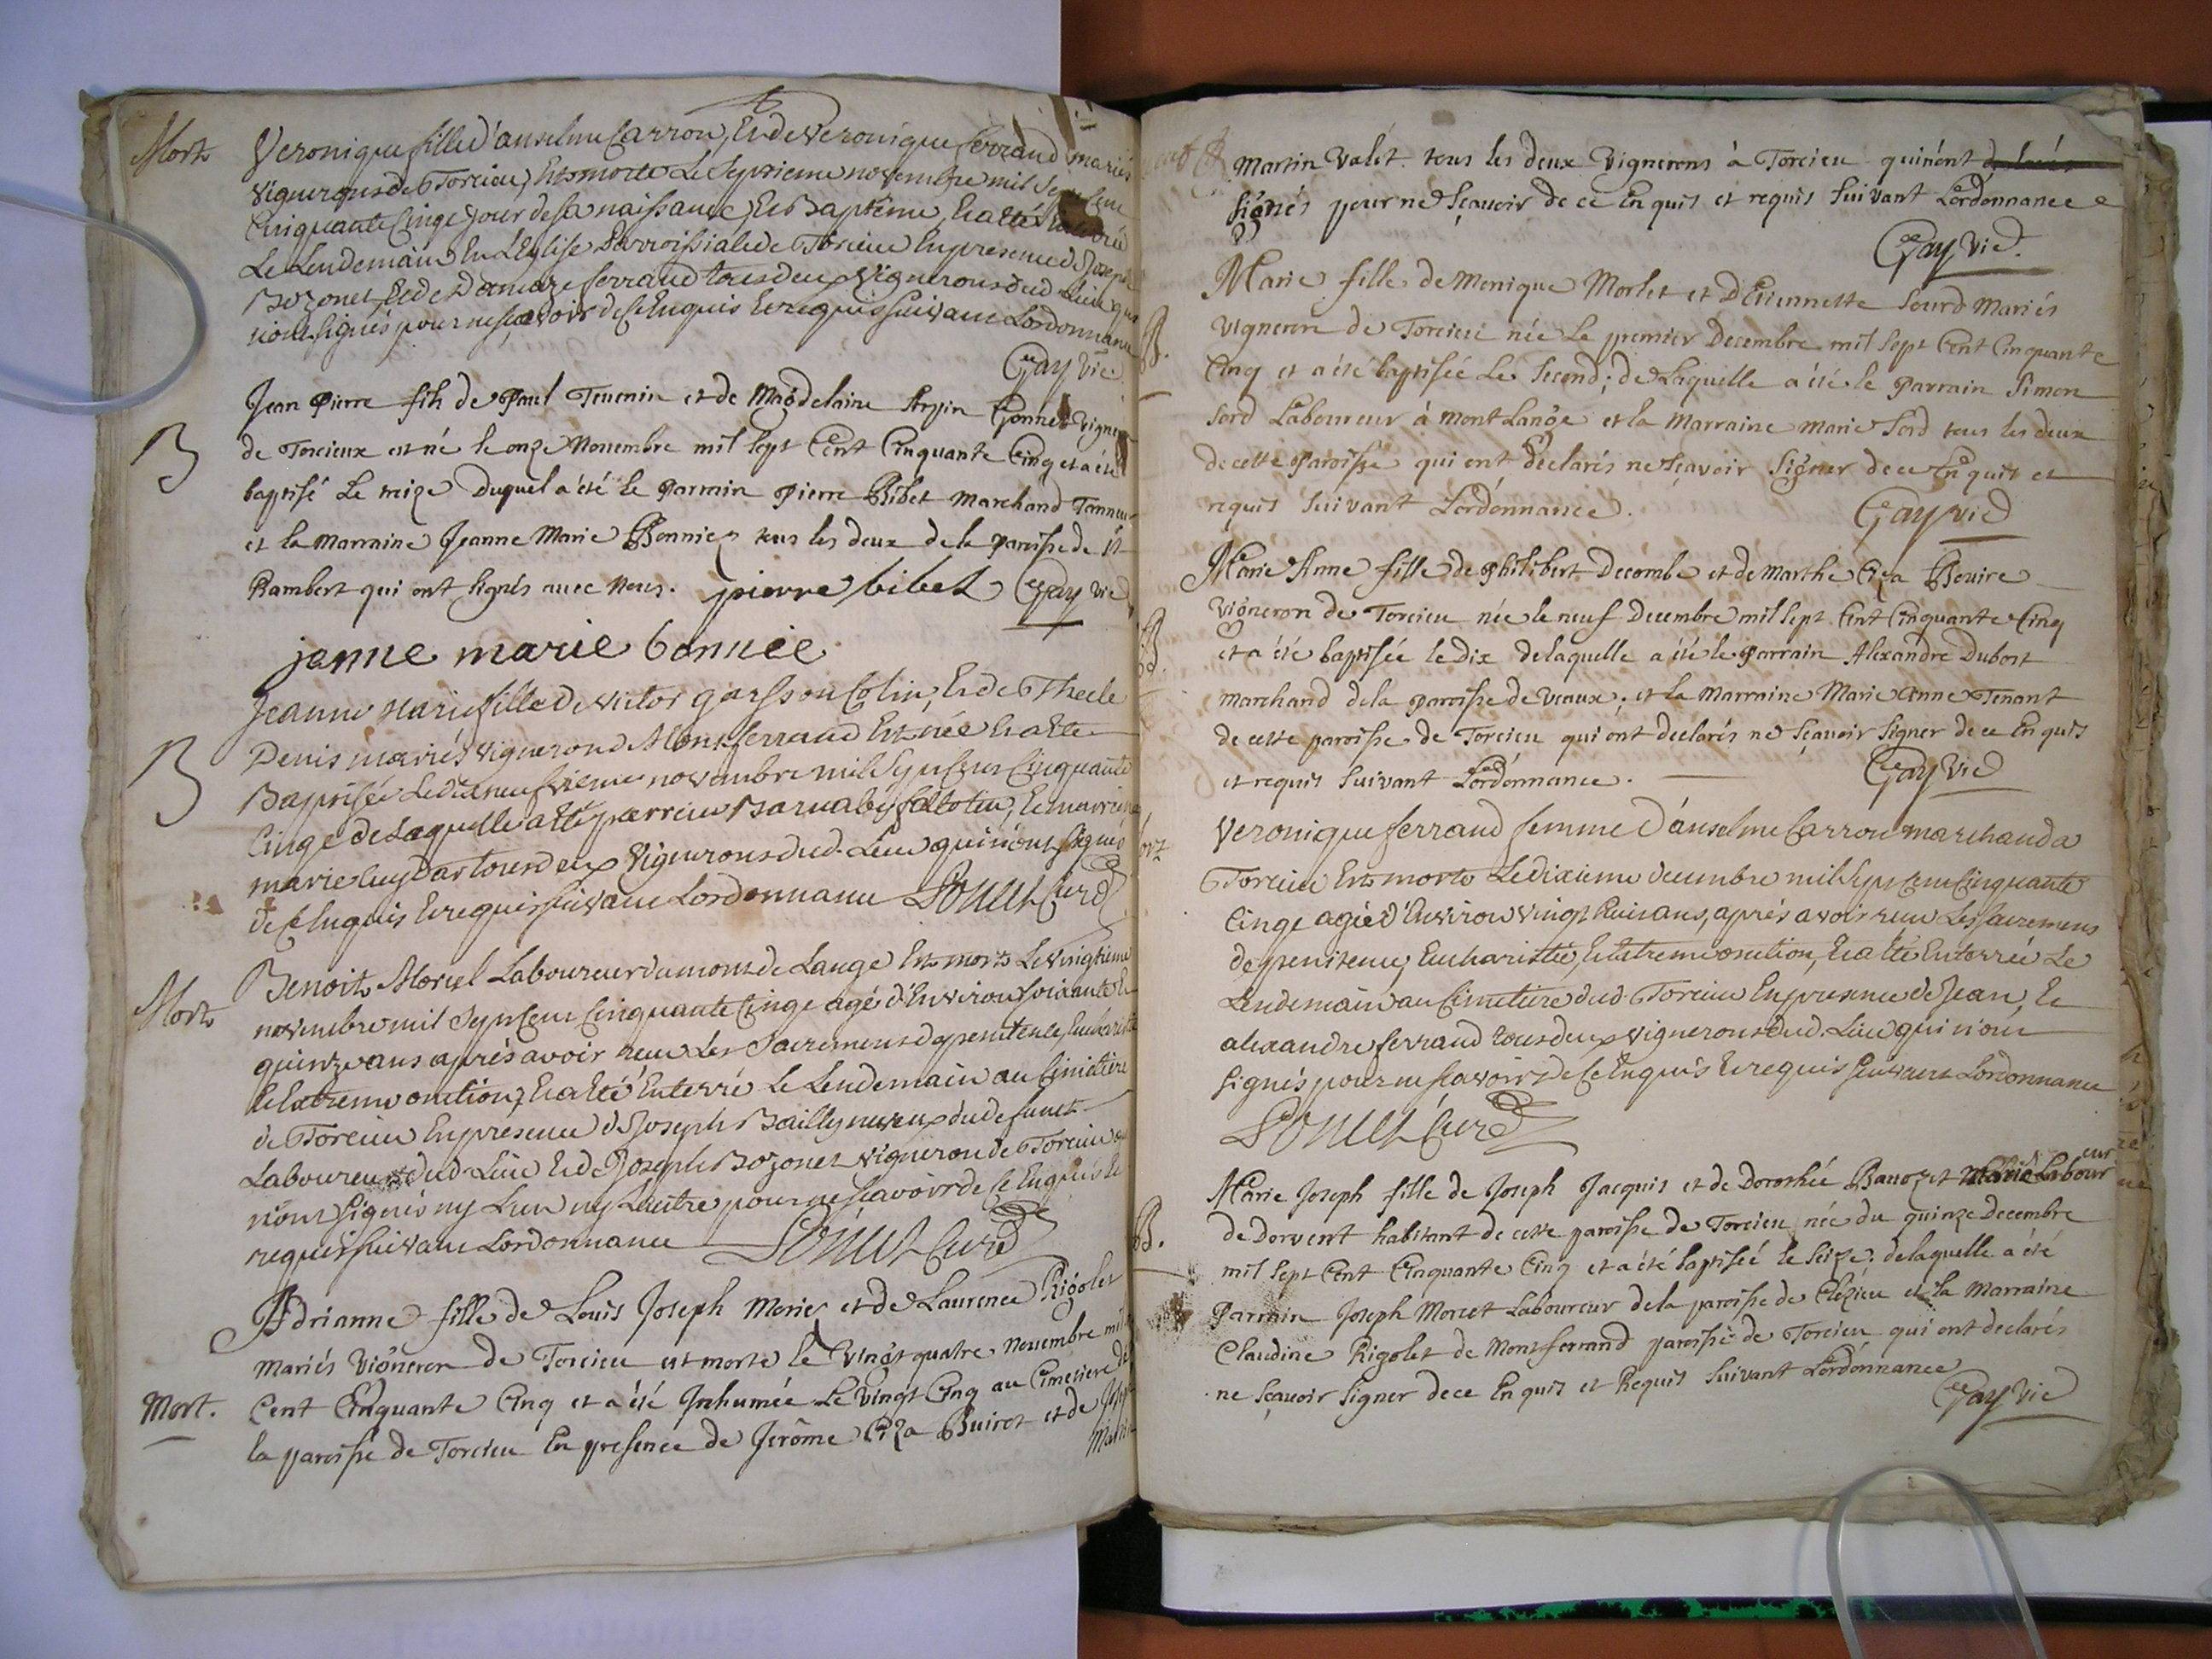 Mort Veronique fille d'anselme Carron, Et de Veronique ferrand mariés
vignerons de Torcieu, Est morte Le septieme novembre mil sept Cens
Cinquante Cinqe jour de sa naissance, Et Baptême, Et a Eté Enterrée
Le Lendemain En L'Eglise parroissiale de Torcieu En presence de Joseph
Bozonet, Et de ferrand tous deux vignerons dud. Lieu qui
n'ont signés pour ne scavoir de Ce Enquis Et requis suivant Lordonnance
Gay vic.
Jean Pierre fils de Paul Tenenin et de Magdelaine Arpin Gonnet vigneron
B de Torcieux est né le onze Novembre mil sept Cent Cinquante Cinq et a été
baptisé Le treize duquel a été le parrain Pierre Bibet Marchand Tanneur
et la Marraine Jeanne Marie Bonnier tous les deux de la paroisse de St
Rambert qui ont signés avec Nous. pierre bibet Gay vic
jenne marie bonnée
Jeanne Marie fille de victor garsson Colin, Et de Thecle
B Denis mariés vigneron de Montferrand Est née Et a Eté
Baptisée Le dix neufvieme novembre mil sept Cens Cinquante
Cinqe de Laquelle a Eté parrein Barnabé falcotin, Et marreine
marie Cuydar tous deux vignerons dud. Lieu qui n'ont signés
de Ce Enquis Et requis suivant Lordonnance Bonnet Curé
Benoit Morel Laboureur du mont de Lange Est mort Le vingtieme
Mort novembre mil sept Cens Cinquante Cinqe agé d'Environ soixante Et
quinze ans après avoir reçu Les Sacremens de penitence, Eucharistie
Et Extreme onction, Et a Eté Enterré Le Lendemain au Cimetiere
de Torcieu En presence de Joseph Bailly neveu du defunct
Laboureur dud. Lieu Et de Joseph Bozonet vigneron de Torcieu qui
n'ont signés ny L'un ny L'autre pour ne scavoir de Ce Enquis Et
requis suivant Lordonnance Bonnet Curé
Adrianne fille de Louis Joseph Morier et de Laurence Rigolet
mariés Vigneron de Torcieu est morte le Vingt quatre Novembre mil
Mort. Cent Cinquante Cinq et a été Inhumée Le Vingt Cinq au Cimetiere de
la paroisse de Torcieu En presence de Jerôme Ciza Buiret et de
Martin Valet. tous les deux Vignerons à Torcieu qui n'ont
signés pour ne sçavoir de ce Enquis et requis suivant L'ordonnance
Gay Vic.
Marie fille de Monique Morlet et D'Etiennette Sourd Mariés
B. Vigneron de Torcieu née Le premier Decembre mil sept Cent Cinquante
Cinq et a été baptisée Le second; de Laquelle a été le parrain Simon
Sord Laboureur à Mont Lange et la Marraine Marie Sord tous les deux
de cette paroisse qui ont déclarés ne sçavoir signer de ce Enquis et
requis suivant L'ordonnance. Gay vic
Marie Anne fille de Philibert Decomble et de Marthe Ciza Bouire
B. Vigneron de Torcieu née le neuf Decembre mil sept Cent Cinquante Cinq
et a été baptisée le dix de laquelle a été le parrain Alexandre Dubost
Marchand de la paroisse de Vaux; et la Marraine Marie Anne Tenant
de cette paroisse de Torcieu qui ont declarés ne sçavoir signer de ce Enquis
et requis suivant L'ordonnance. Gay Vic
Veronique ferrand femme d'anselme Carron marchand a
Torcieu Est morte Le dixieme decembre mil sept Cens Cinquante
Cinqe agée d'Environ vingt huit ans, après avoir reçu Les sacremens
de penitence, Eucharistie, Et Extreme onction, Et a Eté Enterrée Le
Lendemain au Cimetiere dud. Torcieu En presence de Jean, Et
alexandre ferrand tous deux vignerons dud. Lieu qui n'ont
signés pour ne scavoir de Ce Enquis Et requis suivant Lordonnance
Bonnet Curé
Marie Joseph fille de Joseph Jacquis et de Dorothée Banozet Laboureur
B. de Dorvent habitant de cette paroisse de Torcieu née du quinze Decembre
mil sept Cent Cinquante Cinq et a été baptisée le seize. de laquelle a été
parrain Joseph Morcet Laboureur de la paroisse de Clézieu et la Marraine
Claudine Rigolet de Montferrand paroisse de Torcieu qui ont declarés
ne sçavoir signer de ce Enquis et Requis suivant L'ordonnance
Gay Vic